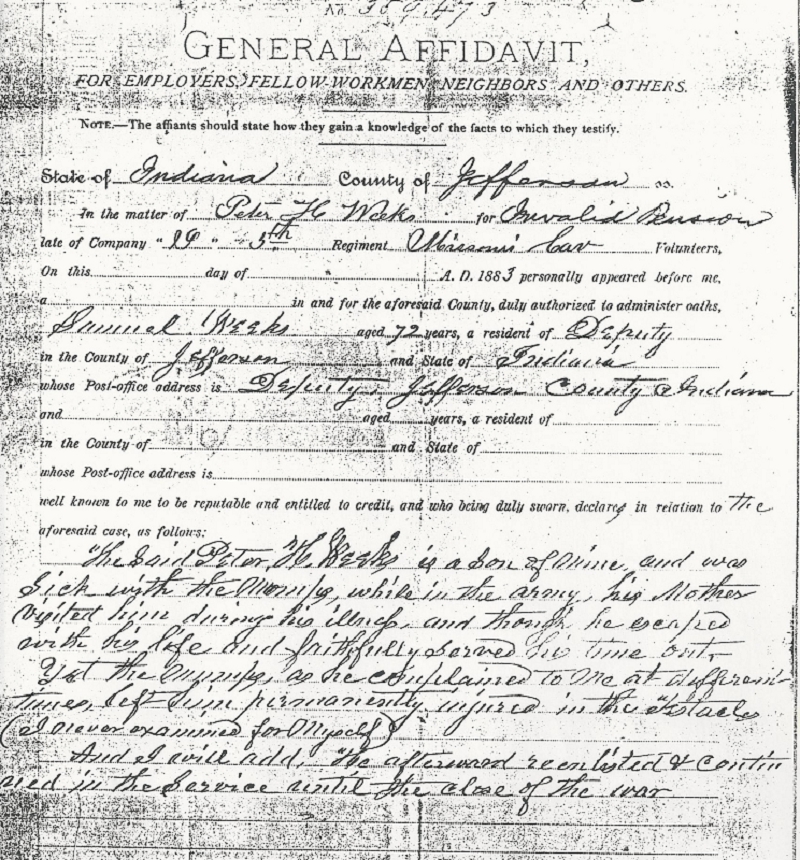 No. 359,473
GENERAL AFFIDAVIT,
FOR EMPLOYERS, FELLOW-WORKMEN, NEIGHBORS AND OTHERS.
NOTE.—The affiants should state how they gain a knowledge of the facts to which they testify.
State of Indiana County of Jefferson ss.
In the matter of Peter H Weeks for Invalid Pension
late of Company " " 5th Regiment Missouri Cav Volunteers,
On this day of A. D. 1883 personally appeared before me,
a in and for the aforesaid County, duly authorized to administer oaths,
Samuel Weeks aged 72 years, a resident of Deputy
in the County of Jefferson and State of Indiana
whose Post-office address is Deputy, Jefferson County Indiana
and aged years, a resident of
in the County of and State of
whose Post-office address is
well known to me to be reputable and entitled to credit, and who being duly sworn, declares in relation to the
aforesaid case, as follows:
The Said Peter H Weeks is a son of Mine, and was
Sick with the Mumps, while in the army, his Mother
visited him during his illness, and though he escaped
with his life and faithfully served his time out,
Yet the Mumps, as he complained to me at different
times, left him permanently injured in the
(I never examined for Myself)
And I will add, he afterward reenlisted & contin
ued in the Service until the close of the war